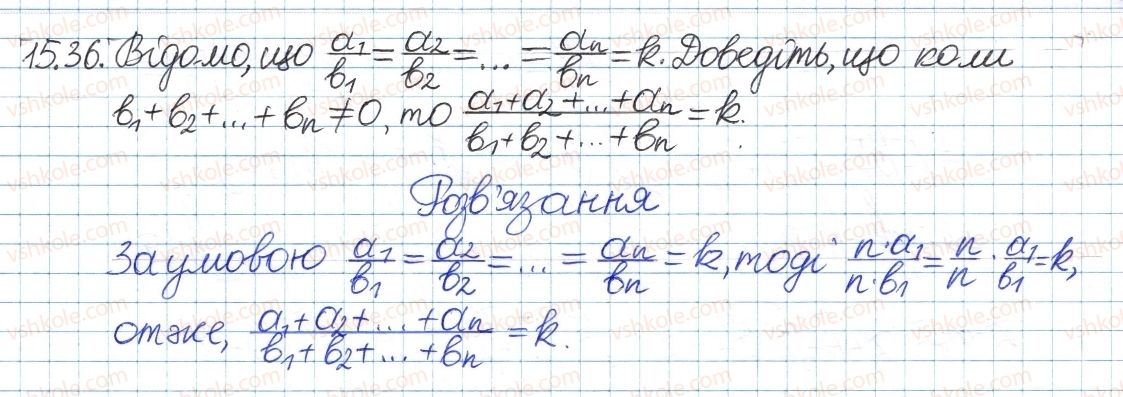 15.36. Відомо, що a₁/b₁ = a₂/b₂ = ... = aₙ/bₙ = k. Доведіть, що коли
b₁+b₂+...+bₙ ≠ 0, то (a₁+a₂+...+aₙ)/(b₁+b₂+...+bₙ) = k.
Розв'язання
За умовою a₁/b₁ = a₂/b₂ = ... = aₙ/bₙ = k, тоді (n·a₁)/(n·b₁) = n/n · a₁/b₁ = k,
отже, (a₁+a₂+...+aₙ)/(b₁+b₂+...+bₙ) = k.